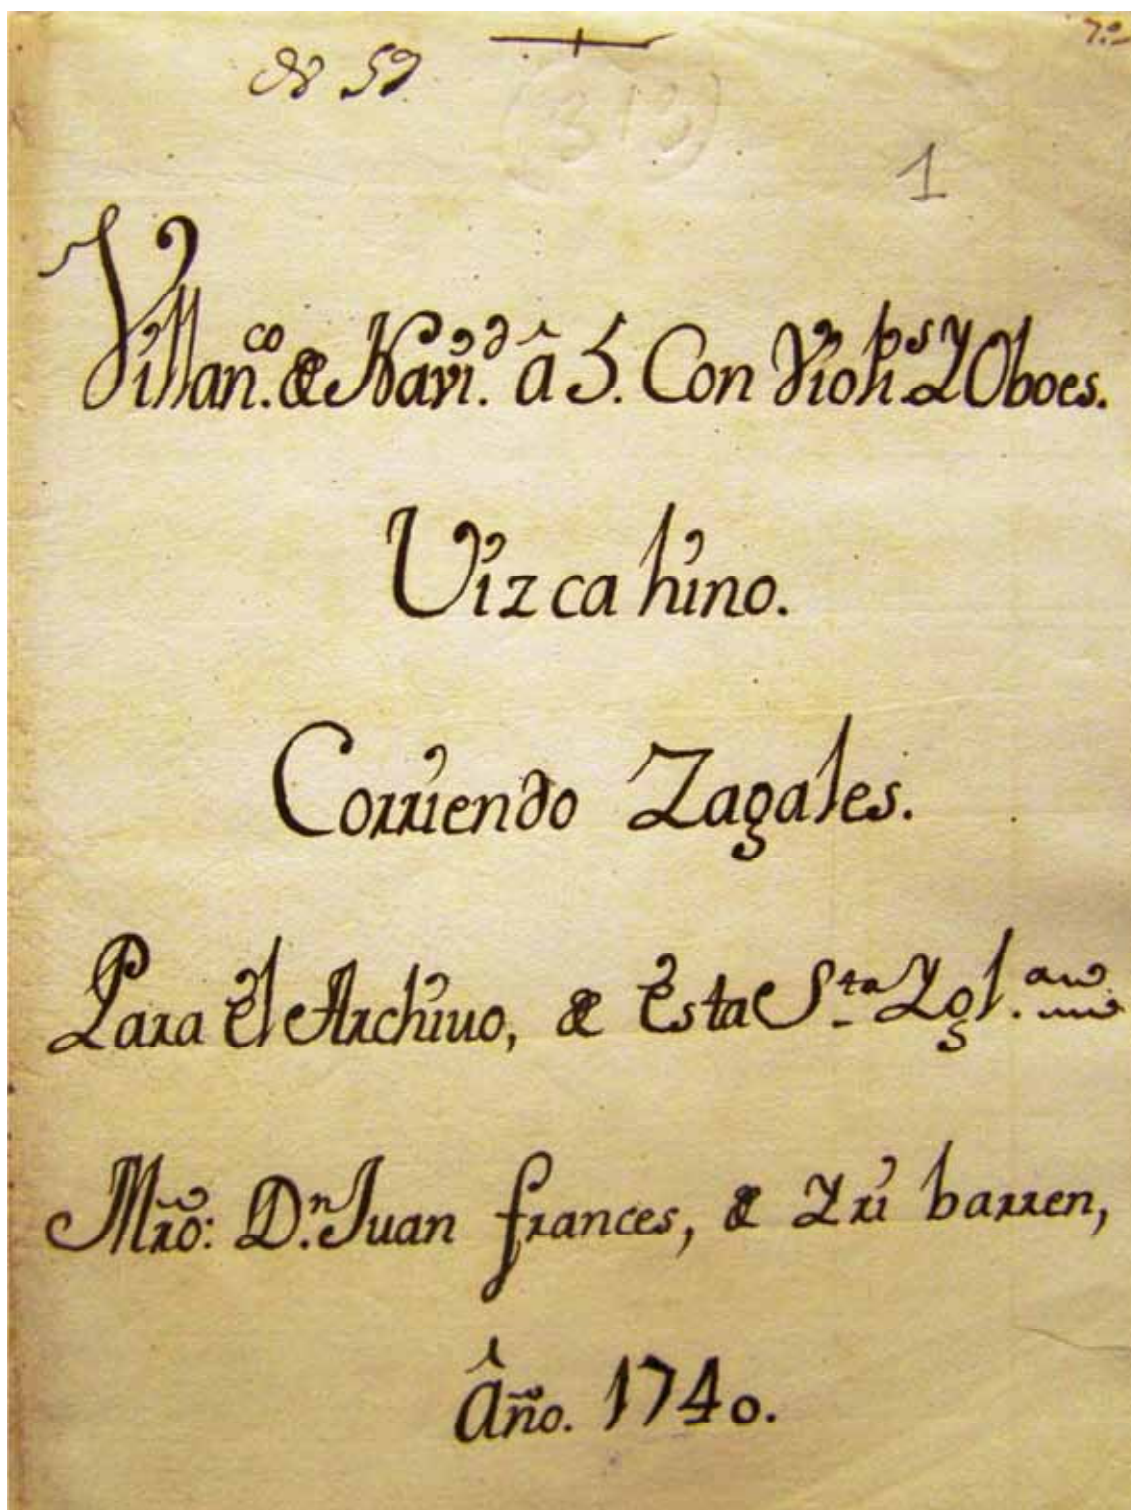 7.º
59
(313)
1
Villan.co de Navi.d â 5. Con Violi.s Y Oboes.
Vizcahino.
Corriendo Zagales.
Para êl Archiuo, de êsta S.ta Ygl.
Mrõ: D.n Juan frances, de Yri barren,
Âño. 1740.